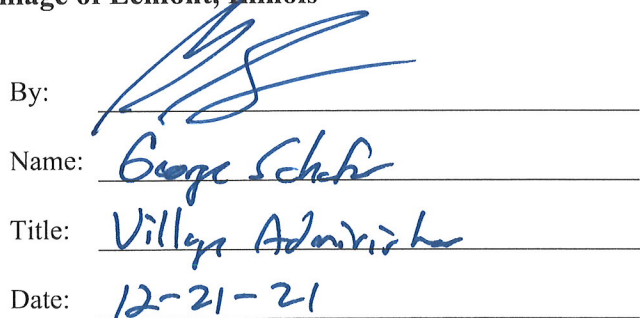 Village of Lemont, Illinois
By:
Name: George Schafer
Title: Village Administrator
Date: 12-21-21